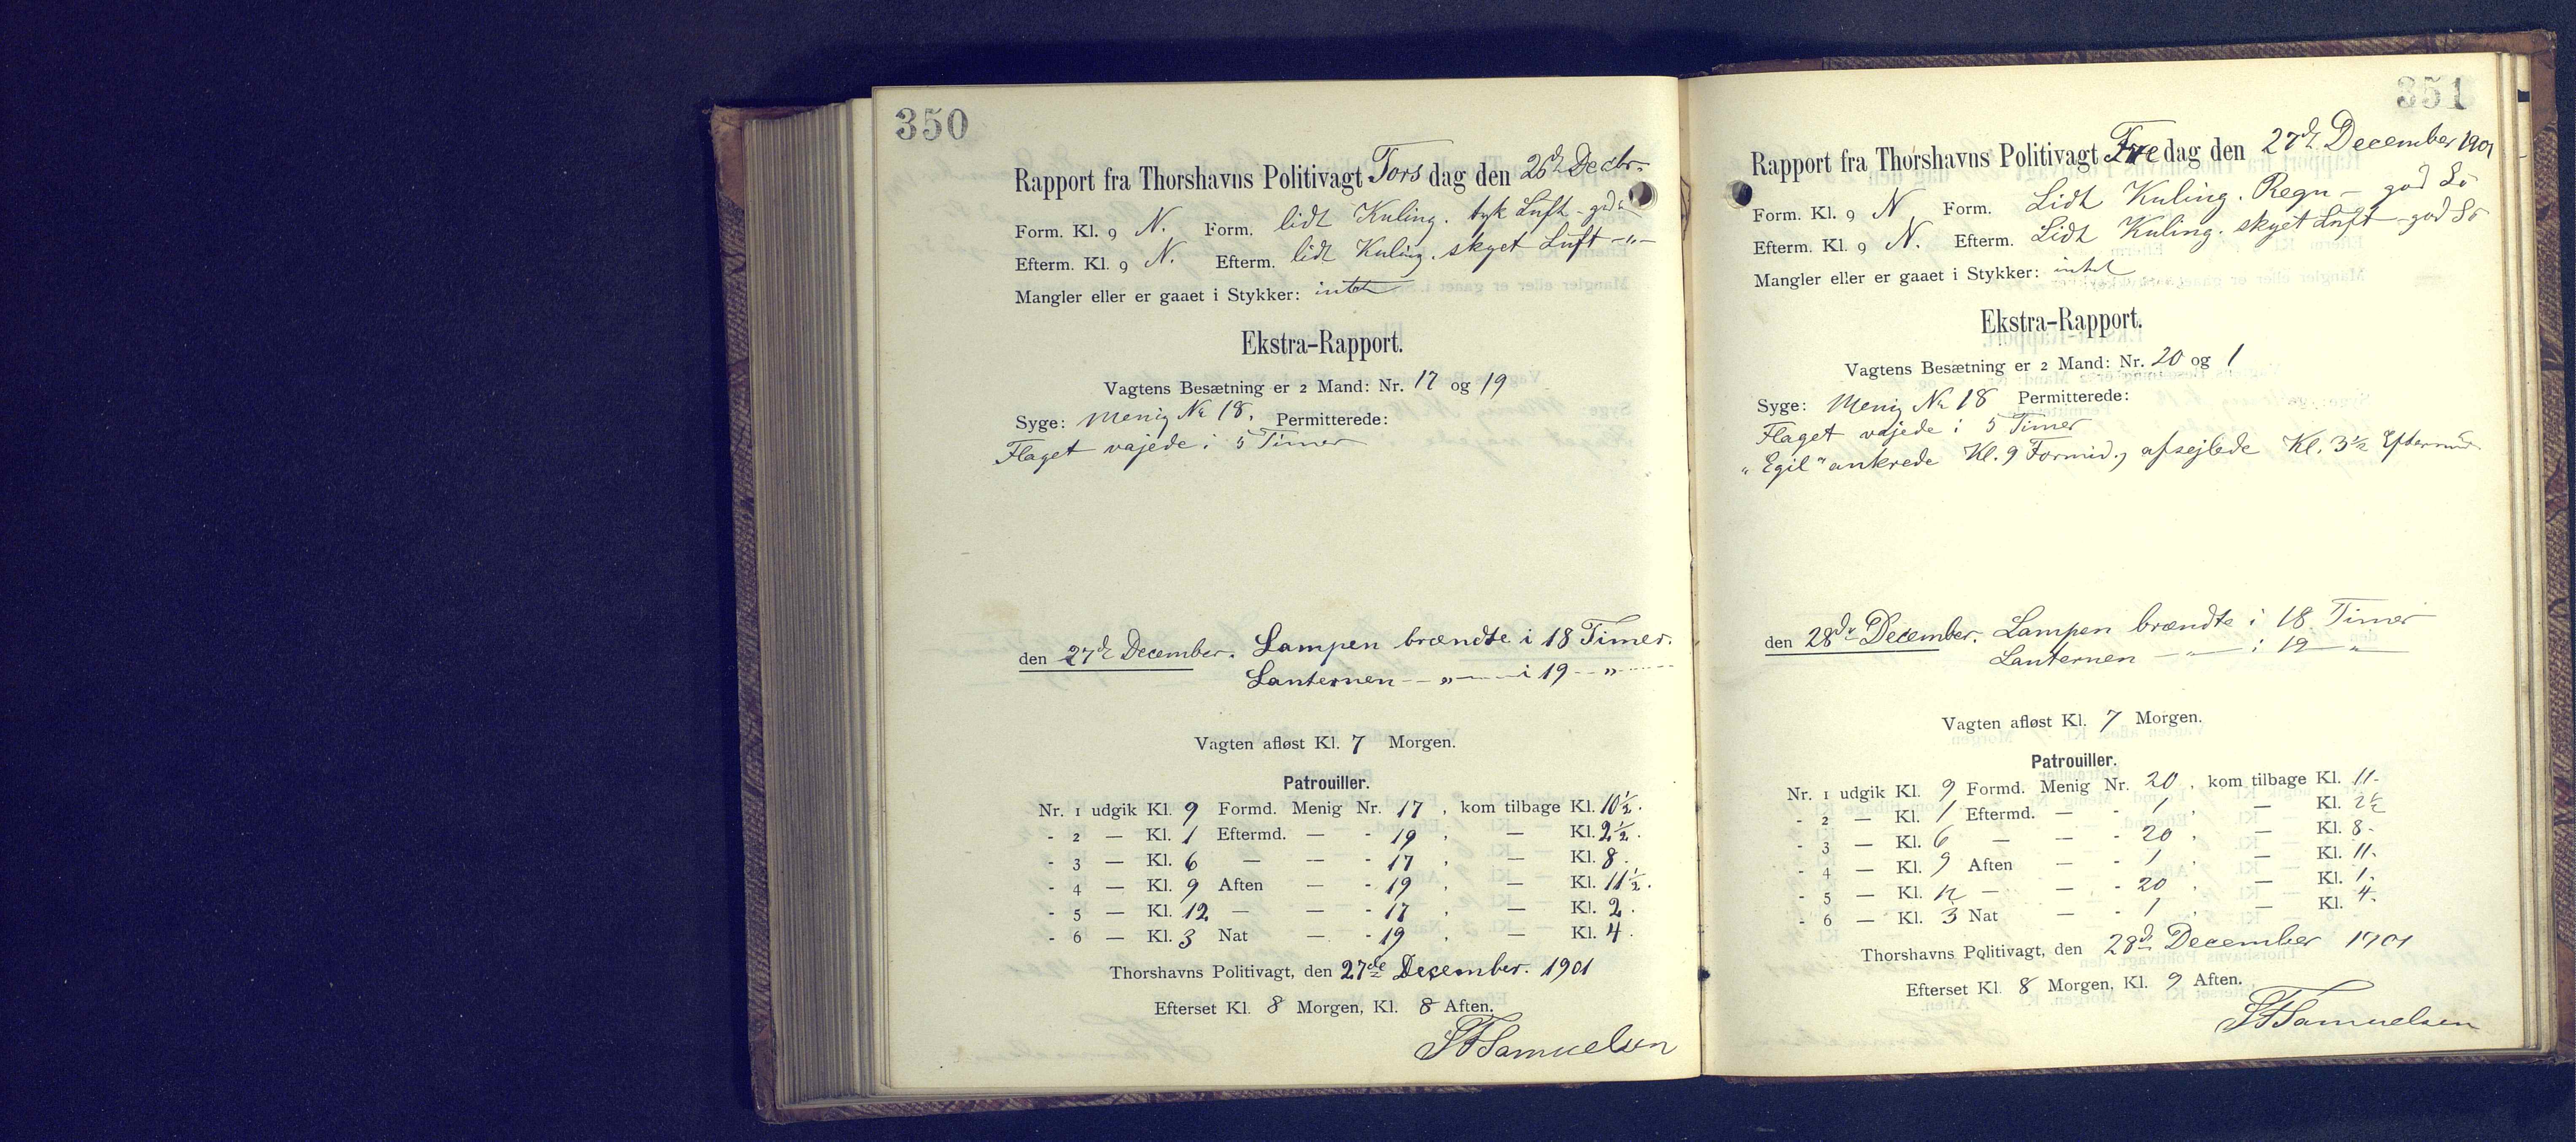 350
Rapport fra Thorshavns Politivagt Torsdag den 26de Decbr.
Form. Kl. 9 N. Form. lidt Kuling. tyk Luft - god
Efterm. Kl. 9 N. Efterm. lidt Kuling. skyet Luft -"-
Mangler eller er gaaet i Stykker: intet
Ekstra-Rapport.
Vagtens Besætning er 2 Mand: Nr. 17 og 19
Syge: Menig Nr 18. Permitterede:
Flaget vajede i 5 Timer
den 27de December. Lampen brændte i 18 Timer.
Lanternen -- " --- i 19 -- " ---
Vagten afløst Kl. 7 Morgen.
Patrouiller.
Nr. 1 udgik Kl. 9 Formd. Menig Nr. 17, kom tilbage Kl. 10½.
- 2 — Kl. 1 Eftermd. — - 19, — Kl. 2½.
- 3 — Kl. 6 — — - 17, — Kl. 8.
- 4 — Kl. 9 Aften — - 19, — Kl. 11½.
- 5 — Kl. 12 — — - 17, — Kl. 2.
- 6 — Kl. 3 Nat — - 19, — Kl. 4.
Thorshavns Politivagt, den 27de December. 1901
Efterset Kl. 8 Morgen, Kl. 8 Aften.
SFSamuelsen
351
Rapport fra Thorshavns Politivagt Fredag den 27de December 1901
Form. Kl. 9 N Form. Lidt Kuling. Regn - god Sö
Efterm. Kl. 9 N. Efterm. Lidt Kuling. skyet Luft - god Sö
Mangler eller er gaaet i Stykker: intet
Ekstra-Rapport.
Vagtens Besætning er 2 Mand: Nr. 20 og 1
Syge: Menig Nr 18 Permitterede:
Flaget vajede i 5 Timer
"Egil" ankrede Kl. 9 Formid., afsejlede Kl. 3½ Eftermid
den 28de December. Lampen brændte i 18 Timer
Lanternen - " - i 19 - " -
Vagten afløst Kl. 7 Morgen.
Patrouiller.
Nr. 1 udgik Kl. 9 Formd. Menig Nr. 20, kom tilbage Kl. 11-
- 2 — Kl. 1 Eftermd. — - 1, — Kl. 2½
- 3 — Kl. 6 — — - 20, — Kl. 8-
- 4 — Kl. 9 Aften — - 1, — Kl. 11-
- 5 — Kl. 12 — — - 20, — Kl. 1-
- 6 — Kl. 3 Nat — - 1, — Kl. 4-
Thorshavns Politivagt, den 28de December 1901
Efterset Kl. 8 Morgen, Kl. 9 Aften.
SFSamuelsen